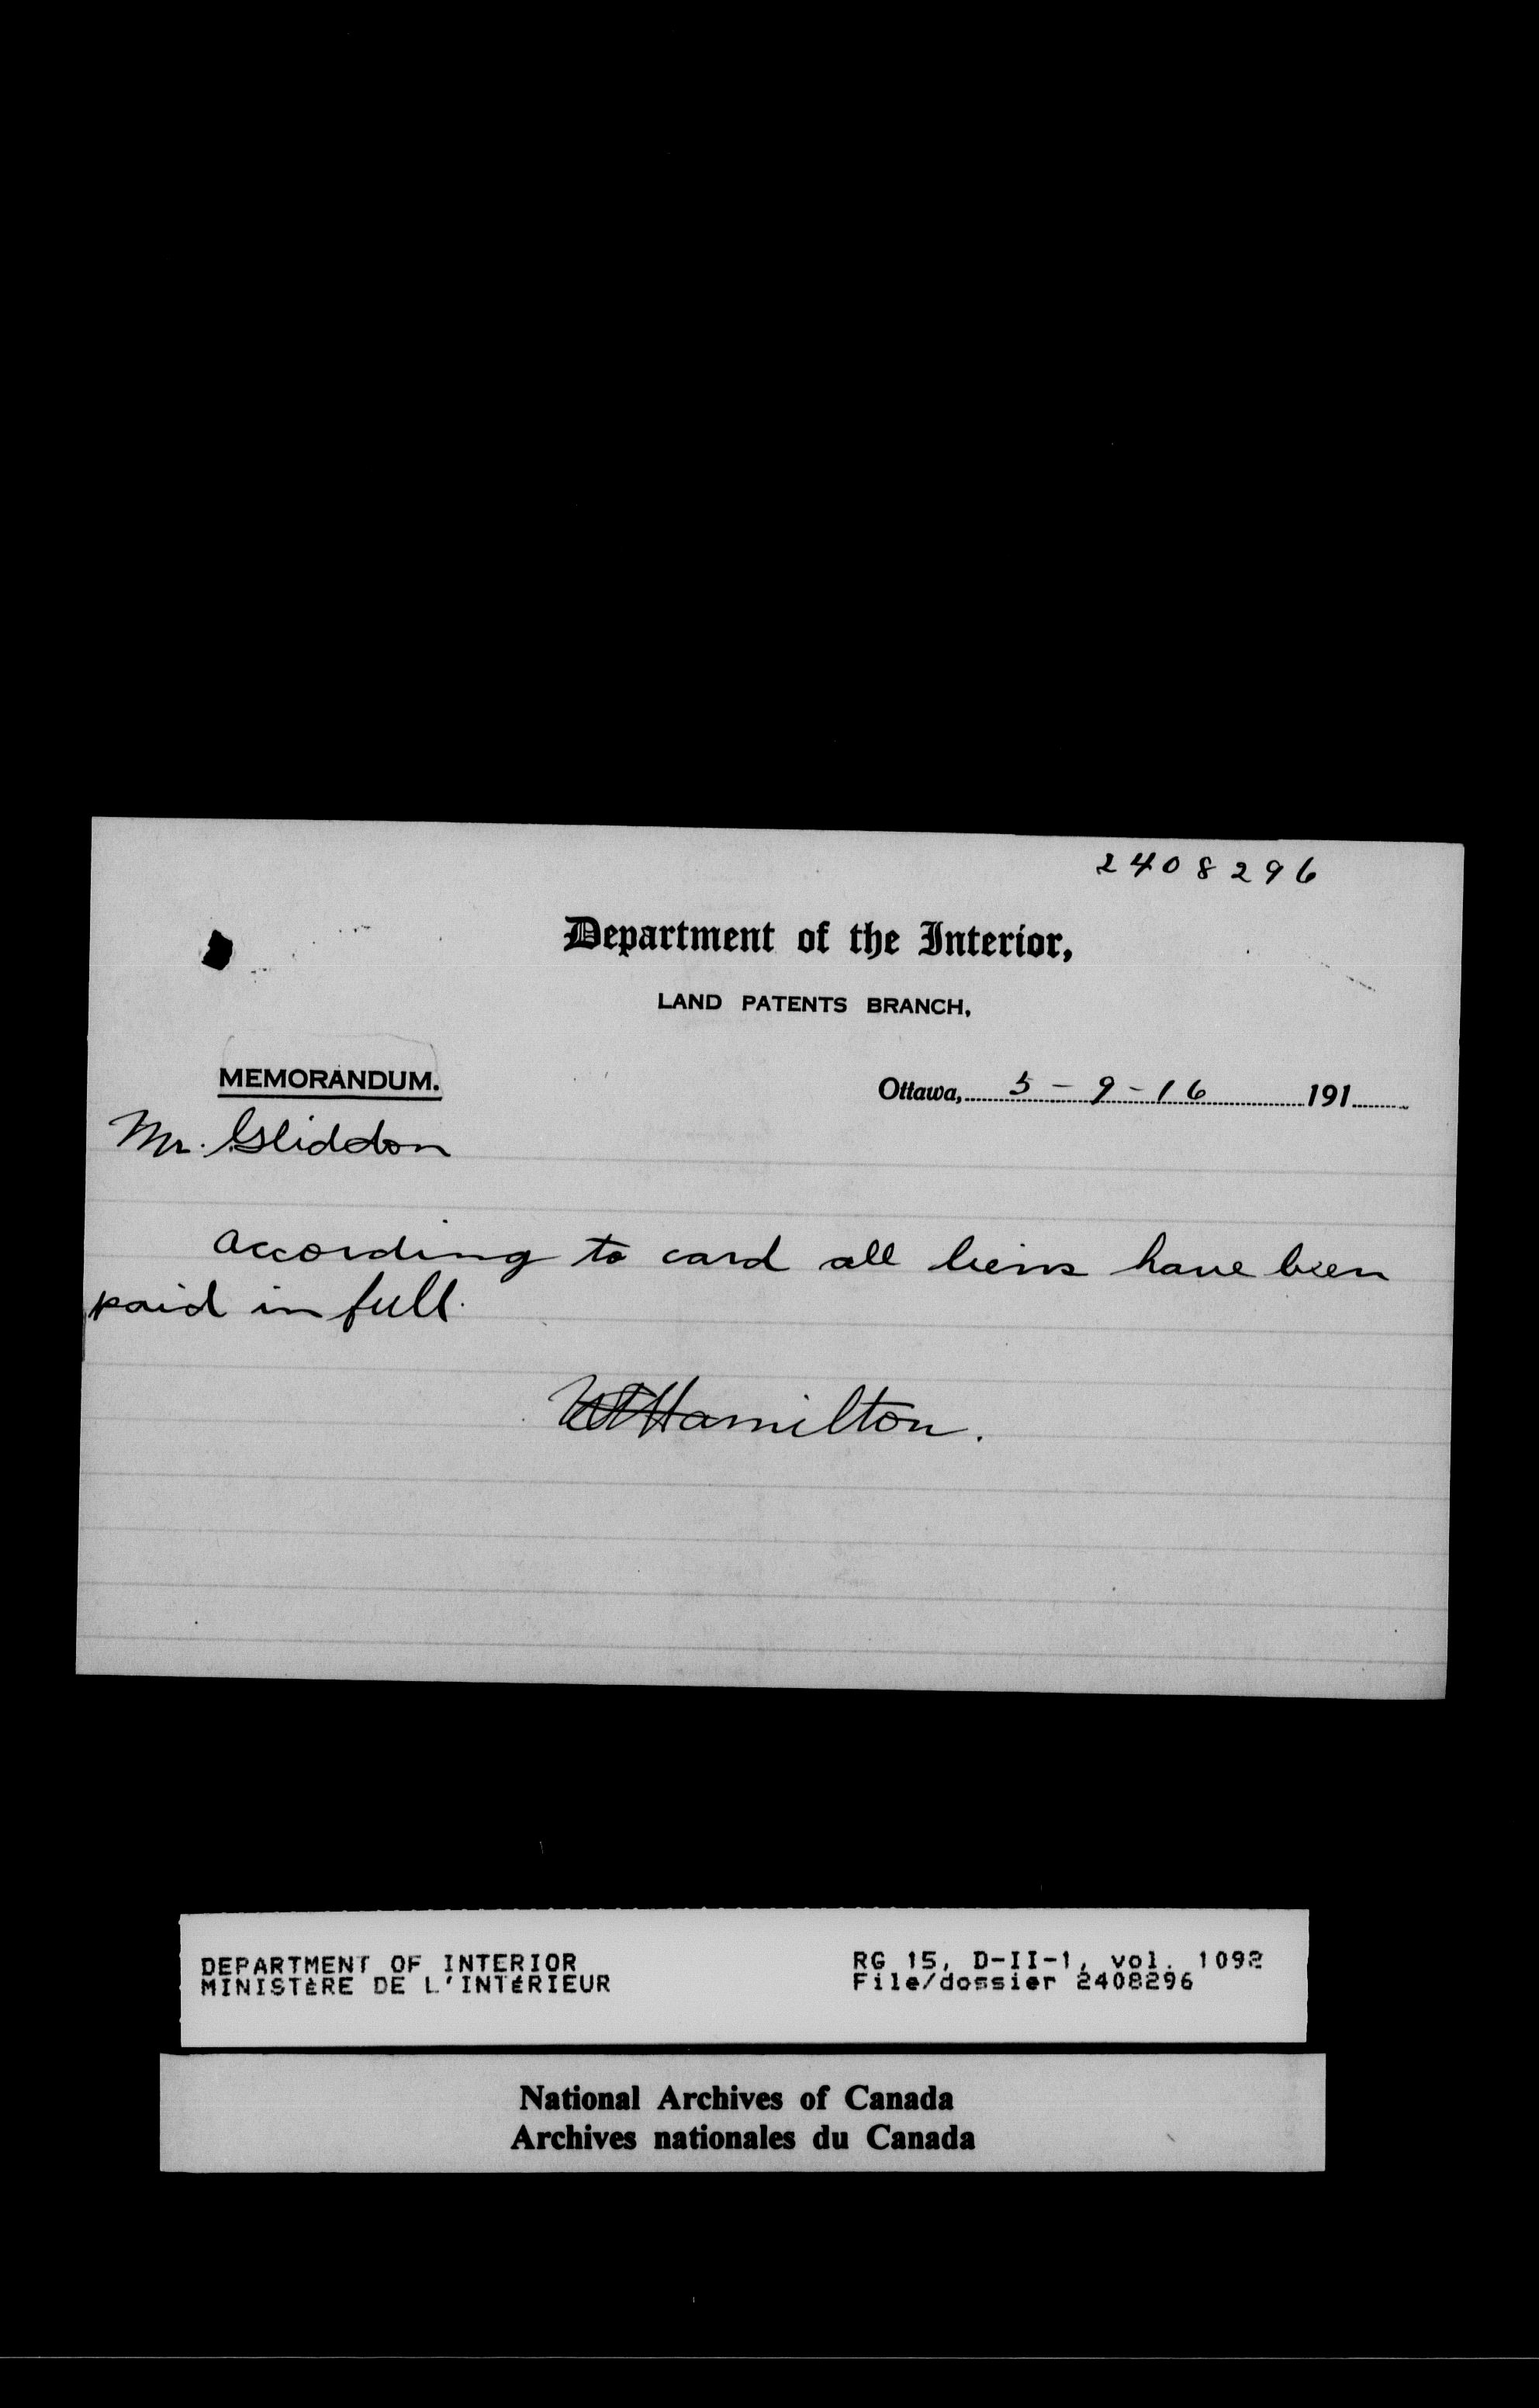 2408296
Department of the Interior,
LAND PATENTS BRANCH,
MEMORANDUM.
Ottawa, 5-9-16 191
Mr. Gliddon
According to card all liens have been
paid in full.
Hamilton.
DEPARTMENT OF INTERIOR
MINISTÈRE DE L'INTÉRIEUR
RG 15, D-II-1, vol. 1092
File/dossier 2408296
National Archives of Canada
Archives nationales du Canada